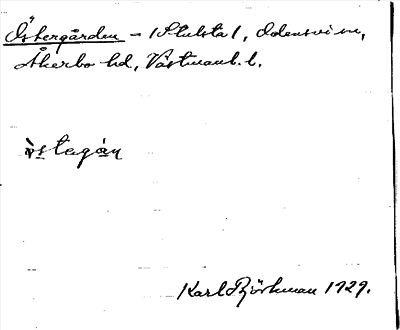 Östergården – (Stulsta), Odensvi sn,
Åkerbo hd, Västmanl. l.
östegån
Karl Björkman 1929.